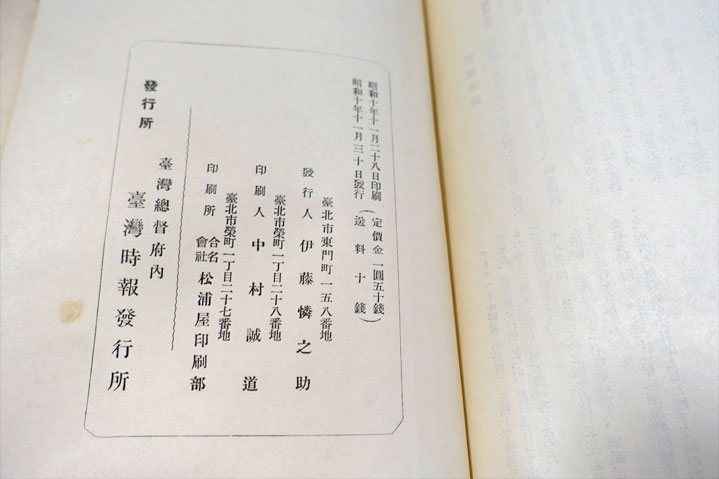 昭和十年十一月二十八日印刷
昭和十年十一月三十日發行
(定價金一圓五十錢)
(送料十錢)
臺北市東門町一五八番地
發行人 伊藤憐之助
臺北市榮町一丁目二十八番地
印刷人 中村誠道
臺北市榮町一丁目二十七番地
印刷所 合名會社 松浦屋印刷部
發行所 臺灣總督府內
臺灣時報發行所